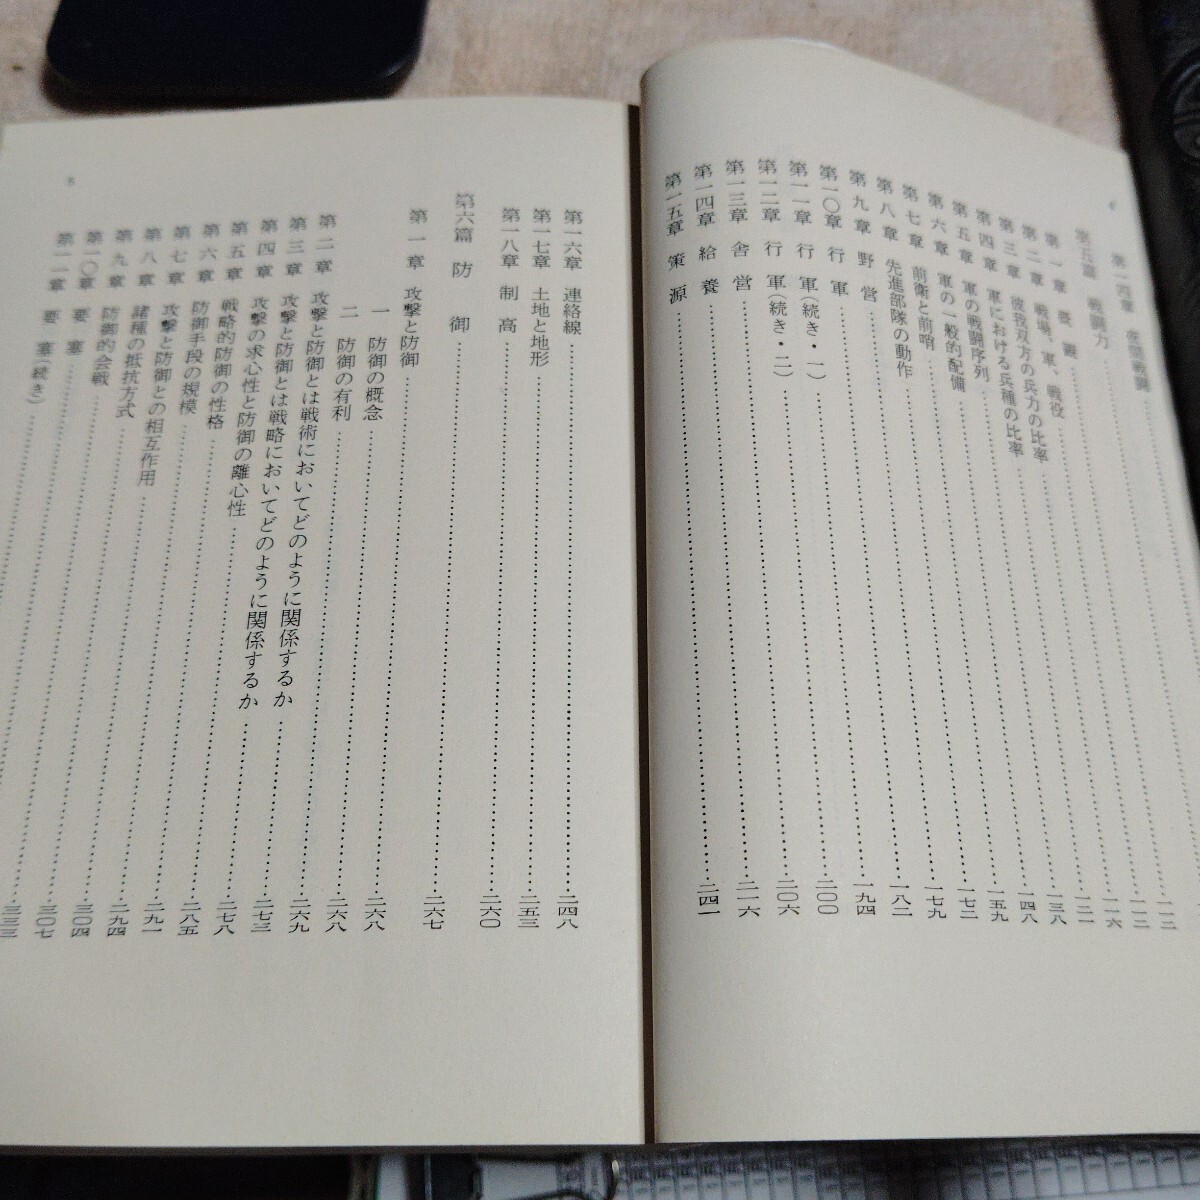 4
第一四章 夜間戦闘……一一二
第五篇 戦闘力……一二一
第一章 概観
第二章 戦場、軍、戦役
第三章 彼我双方の兵力の比率
第四章 軍における兵種の比率……一三八
第五章 軍の戦闘序列……一四八
第六章 軍の一般的配備……一五九
第七章 前衛と前哨……一七二
第八章 先進部隊の動作……一七九
第九章 野営……一八二
第一〇章 行軍……一九四
第一一章 行軍(続き・一)……二〇〇
第一二章 行軍(続き・二)……二〇六
第一三章 舎営……二一六
第一四章 給養
第一五章 策源……二四一
第一六章 連絡線……二四八
第一七章 土地と地形……二五三
第一八章 制高……二六〇
第六篇 防御……二六七
第一章 攻撃と防御……二六八
一 防御の概念……二六八
二 防御の有利……二六九
第二章 攻撃と防御とは戦術においてどのように関係するか……二七三
第三章 攻撃と防御とは戦略においてどのように関係するか……二七八
第四章 攻撃の求心性と防御の離心性……二八五
第五章 戦略的防御の性格……二九一
第六章 防御手段の規模……二九四
第七章 攻撃と防御との相互作用……三〇四
第八章 諸種の抵抗方式……三〇七
第九章 防御的会戦
第一〇章 要塞
第一一章 要塞(続き)
三三三
5